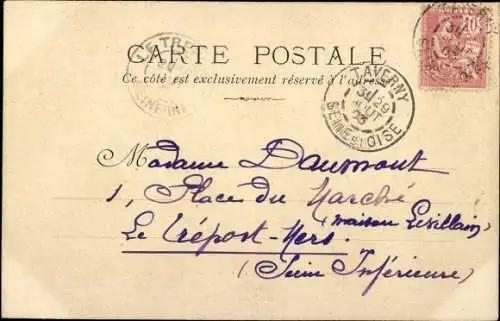 CARTE POSTALE
Ce côté est exclusivement réservé à l'adresse
LE TRÉ
SEINE-IN
TAVERNY
29
AOUT
SEINE ET OISE
10
Madame Daumont
1, Place du Marché
(maison Levillain)
Le Tréport-Mers
(Seine Inférieure)